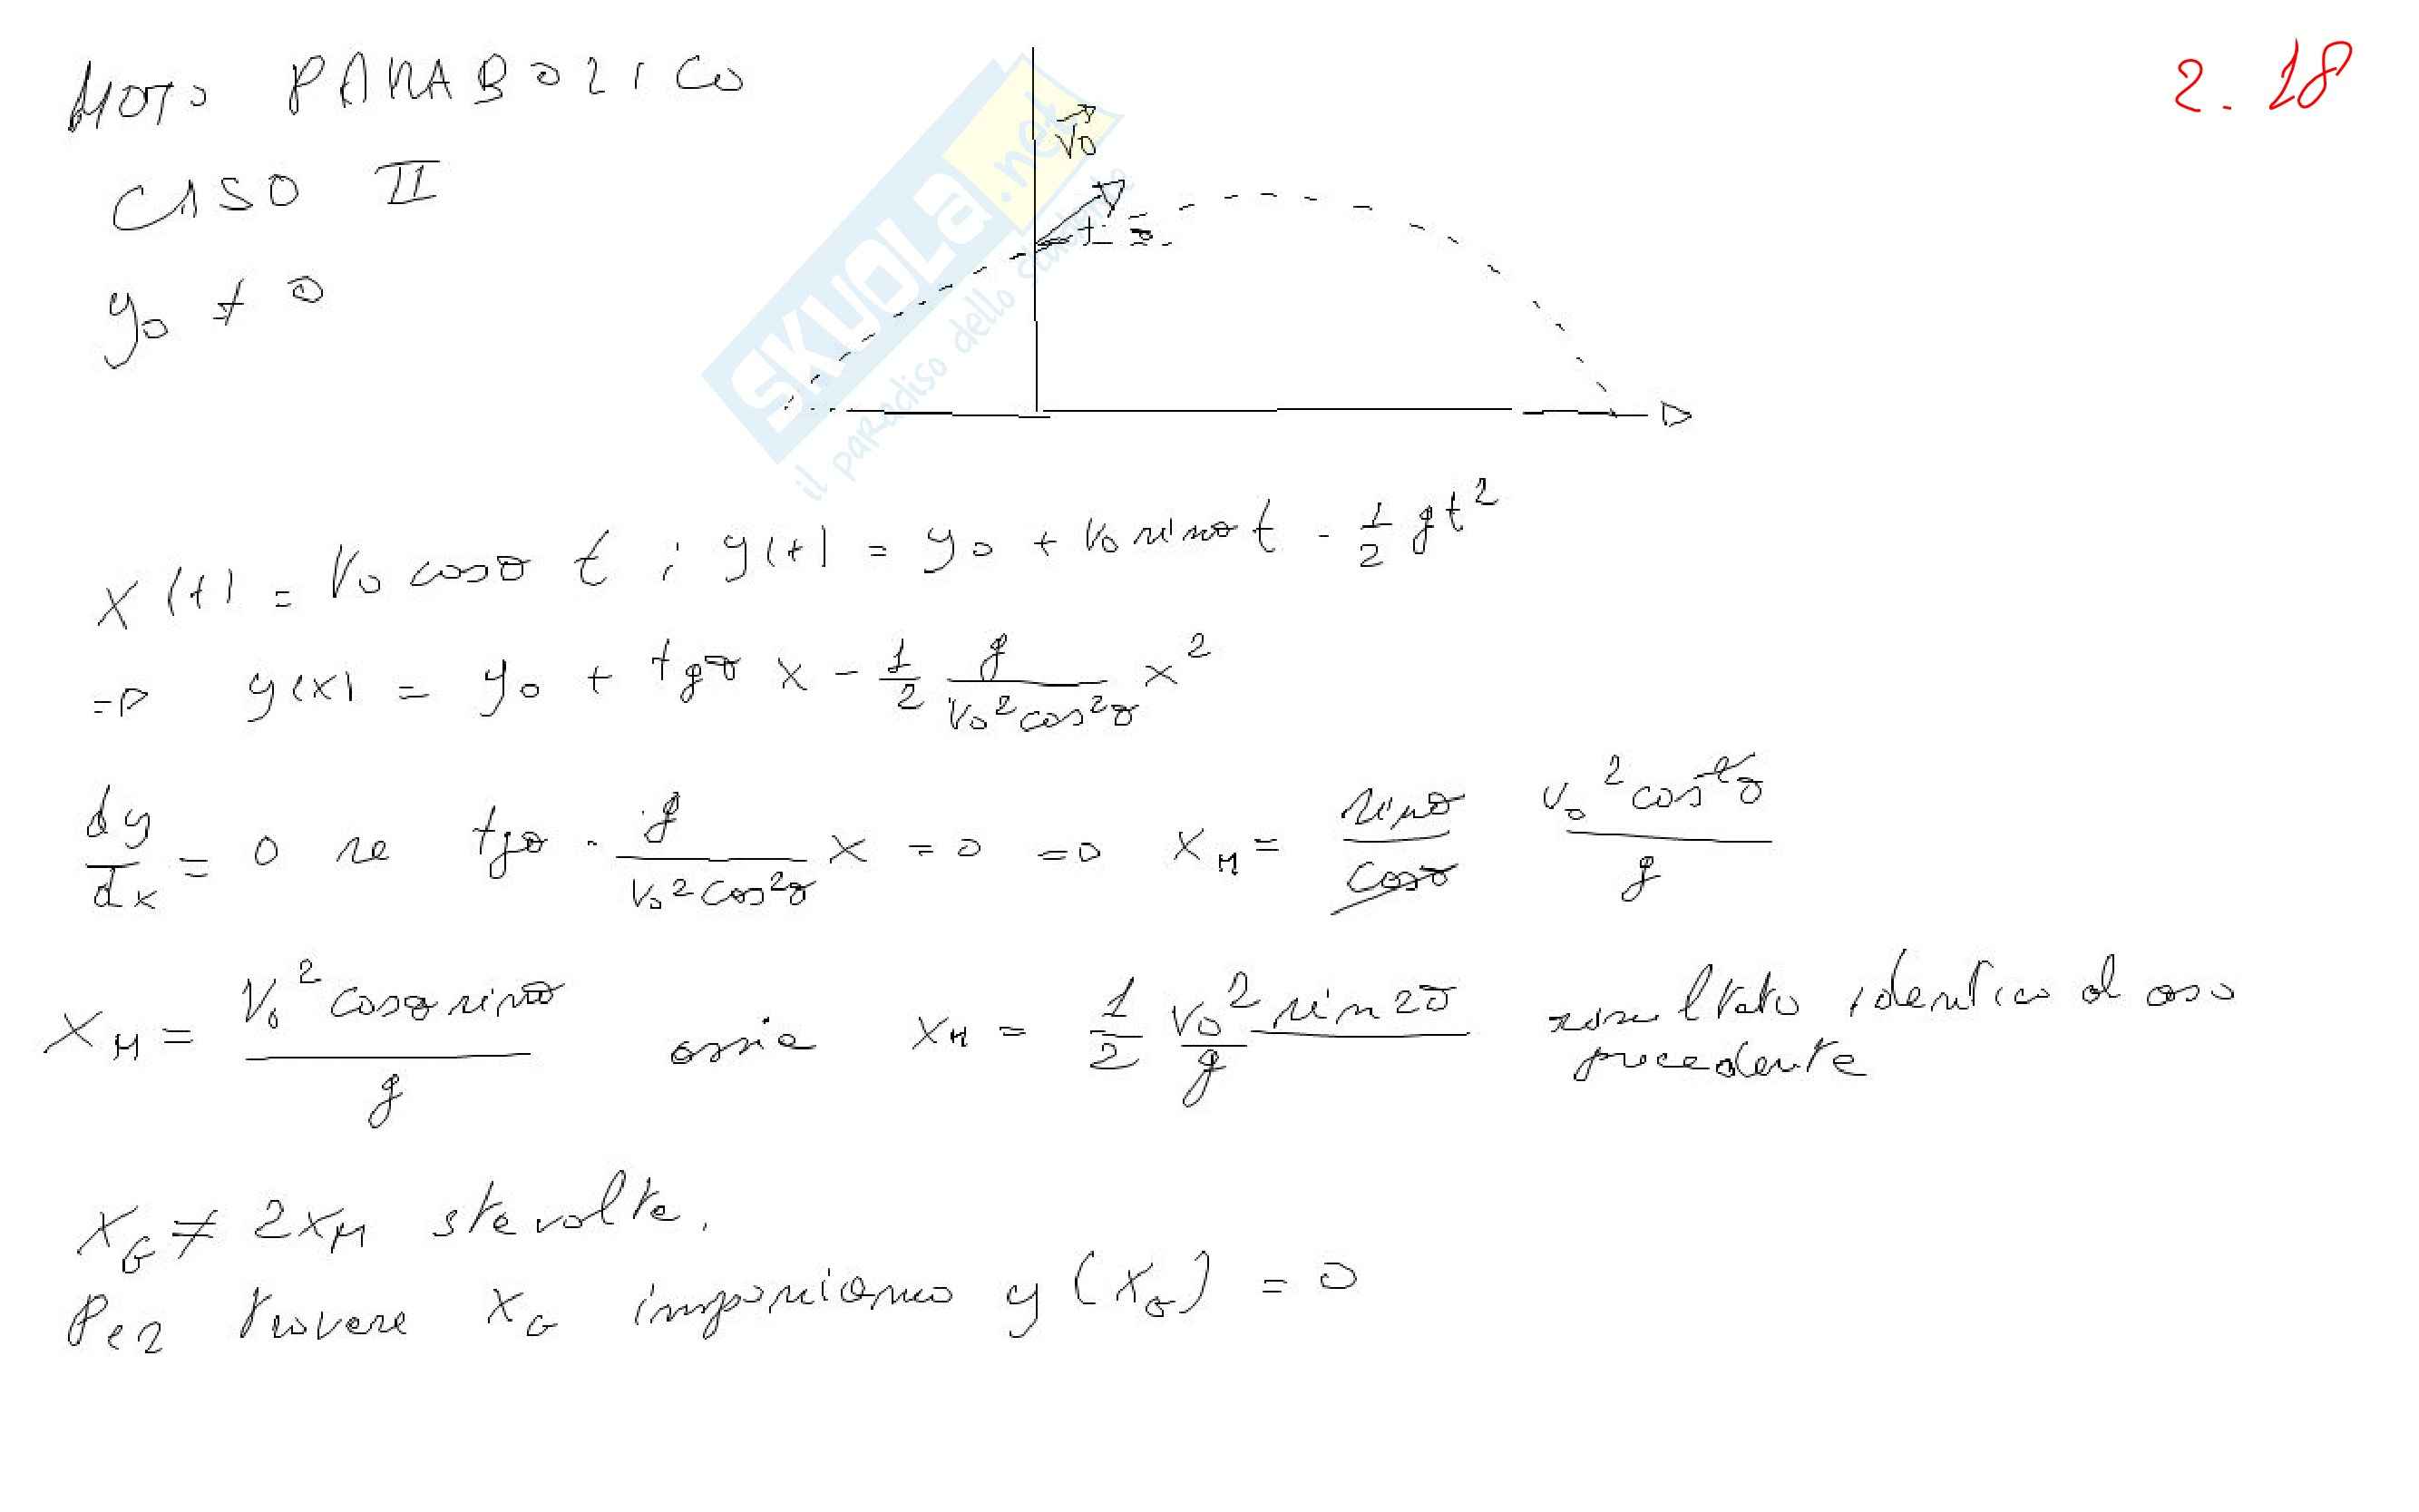 MOTO PARABOLICO
2.18
CASO II
y₀ ≠ 0
v₀
t =
SKUOLA.net
il paradiso dello studente
x(t) = v₀ cosθ t ; y(t) = y₀ + v₀ sinθ t - 1/2 gt²
=> y(x) = y₀ + tgθ x - 1/2 g/(v₀² cos²θ) x²
dy/dx = 0 se tgθ - g/(v₀² cos²θ) x = 0 => x_M = sinθ/cosθ v₀² cos²θ/g
x_M = v₀² cosθ sinθ/g ossia x_M = 1/2 v₀² sin2θ/g risultato identico al caso
precedente
x_G ≠ 2x_M stavolta.
Per trovare x_G imponiamo y(x_G) = 0